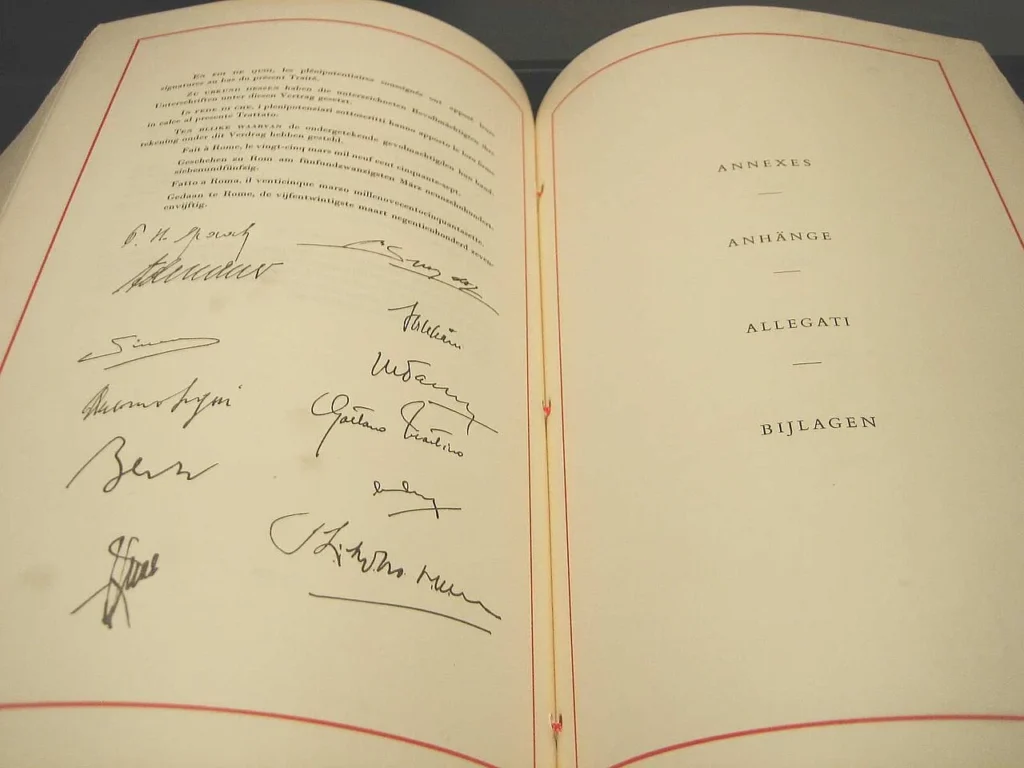 EN FOI DE QUOI, les plénipotentiaires soussignés ont apposé leurs
signatures au bas du présent Traité.
ZU URKUND DESSEN haben die unterzeichneten Bevollmächtigten ihre
Unterschriften unter diesen Vertrag gesetzt.
IN FEDE DI CHE, i plenipotenziari sottoscritti hanno apposto le loro firme
in calce al presente Trattato.
TEN BLIJKE WAARVAN de ondergetekende gevolmachtigden hun hand-
tekening onder dit Verdrag hebben gesteld.
Fait à Rome, le vingt-cinq mars mil neuf cent cinquante-sept.
Geschehen zu Rom am fünfundzwanzigsten März neunzehnhundert-
siebenundfünfzig.
Fatto a Roma, il venticinque marzo millenovecentocinquantasette.
Gedaan te Rome, de vijfentwintigste maart negentienhonderd zeven-
envijftig.
P. H. Spaak
Adenauer
Pineau
Gaetano Martino
Bech
ANNEXES
ANHÄNGE
ALLEGATI
BIJLAGEN